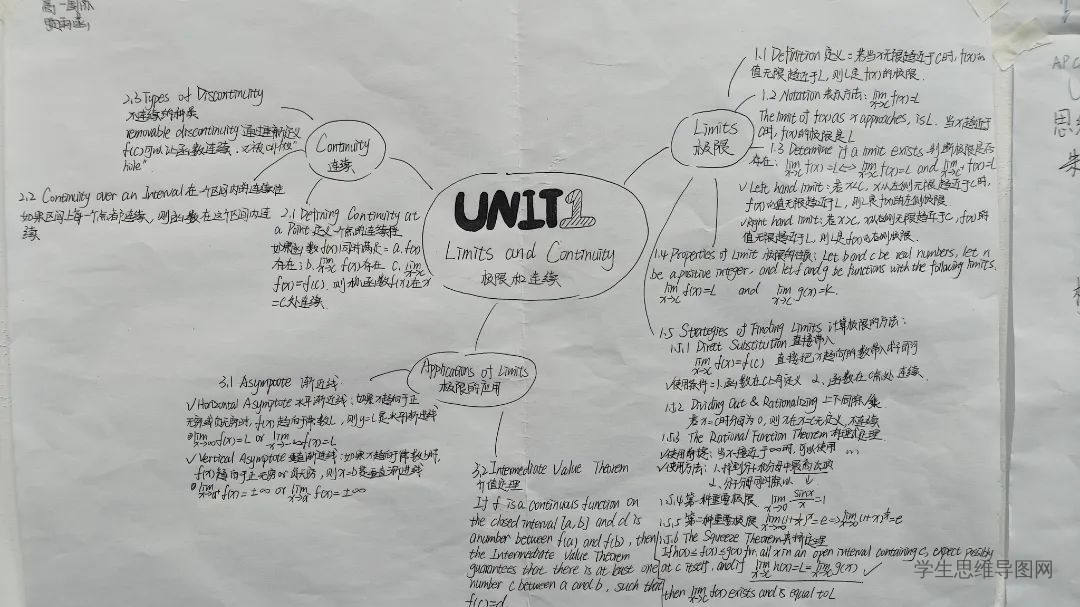 高一国际
UNIT 1
Limits and Continuity
极限和连续
Limits
极限
1.1 Definition 定义:若当x无限趋近于c时, f(x)的
值无限趋近于L, 则L是f(x)的极限.
1.2 Notation 表示方法: lim x→c f(x)=L
The limit of f(x) as x approaches, is L. 当x趋近于
c时, f(x)的极限是L
1.3 Determine if a limit exists 判断极限是否
存在: lim x→c f(x)=L <=> lim x→c⁻ f(x)=L and lim x→c⁺ f(x)=L
✓ Left hand limit: 若x<c, x从左侧无限趋近于c时,
f(x)的值无限趋近于L, 则L是f(x)的左侧极限
✓ Right hand limit: 若x>c, x从右侧无限趋近于c, f(x)的
值无限趋近于L, 则L是f(x)的右侧极限.
1.4 Properties of Limit 极限的性质: Let b and c be real numbers, let n
be a positive integer, and let f and g be functions with the following limits.
lim x→c f(x)=L and lim x→c g(x)=K.
1.5 Strategies of Finding Limits 计算极限的方法:
1.5.1 Direct Substitution 直接带入
lim x→c f(x)=f(c) 直接把x趋向的数带入式子即可
✓使用条件=1.函数在c上有定义 2.函数在c点处连续.
1.5.2 Dividing Out & Rationalizing 上下同除/乘
若x=c时分母为0, 则x在x=c无定义, 不连续
1.5.3 The Rational Function Theorem 有理式定理.
✓使用前提: 当x接近于∞时, 可以使用
✓使用方法: 1.找到分子和分母中最高次数
2.分子分母同时除以
1.5.4 第一种重要极限 lim x→0 sinx/x=1
1.5.5 第二种重要极限 lim x→∞ (1+1/x)^x=e => lim x→0 (1+x)^(1/x)=e
1.5.6 The Squeeze Theorem 夹挤定理
If h(x)≤f(x)≤g(x) for all x in an open interval containing c, expect possibly
at c itself, and if lim x→c h(x)=L=lim x→c g(x) ✓
then lim x→c f(x) exists and is equal to L
Continuity
连续
2.3 Types of Discontinuity
不连续的种类
removable discontinuity 通过重新定义
f(c)可以让函数连续.
hole"
2.2 Continuity over an Interval 在一个区间内的连续性
如果区间上每一个点都连续, 则函数在这个区间内连
续
2.1 Defining Continuity at
a Point 定义一个点的连续性
如果函数f(x)同时满足: a. f(x)
存在; b. lim x→c f(x)存在 c. lim x→c
f(x)=f(c). 则称函数f(x)在x
=c处连续.
Applications of Limits
极限的应用
3.1 Asymptote 渐近线
✓ Horizontal Asymptote 水平渐近线: 如果x趋向于正
无穷或负无穷时, f(x)趋向于常数L, 则y=L是水平渐近线
lim x→∞ f(x)=L or lim x→-∞ f(x)=L
✓ Vertical Asymptote 垂直渐近线: 如果x趋向于常数b时,
f(x)趋向于正无穷or负无穷, 则x=b是垂直渐近线
lim f(x)=±∞ or lim f(x)=±∞
3.2 Intermediate Value Theorem
介值定理
If f is a continuous function on
the closed interval [a,b] and d is
a number between f(a) and f(b), then
the Intermediate Value Theorem
guarantees that there is at least one
number c between a and b, such that
f(c)=d
APC
U
思
学生思维导图网